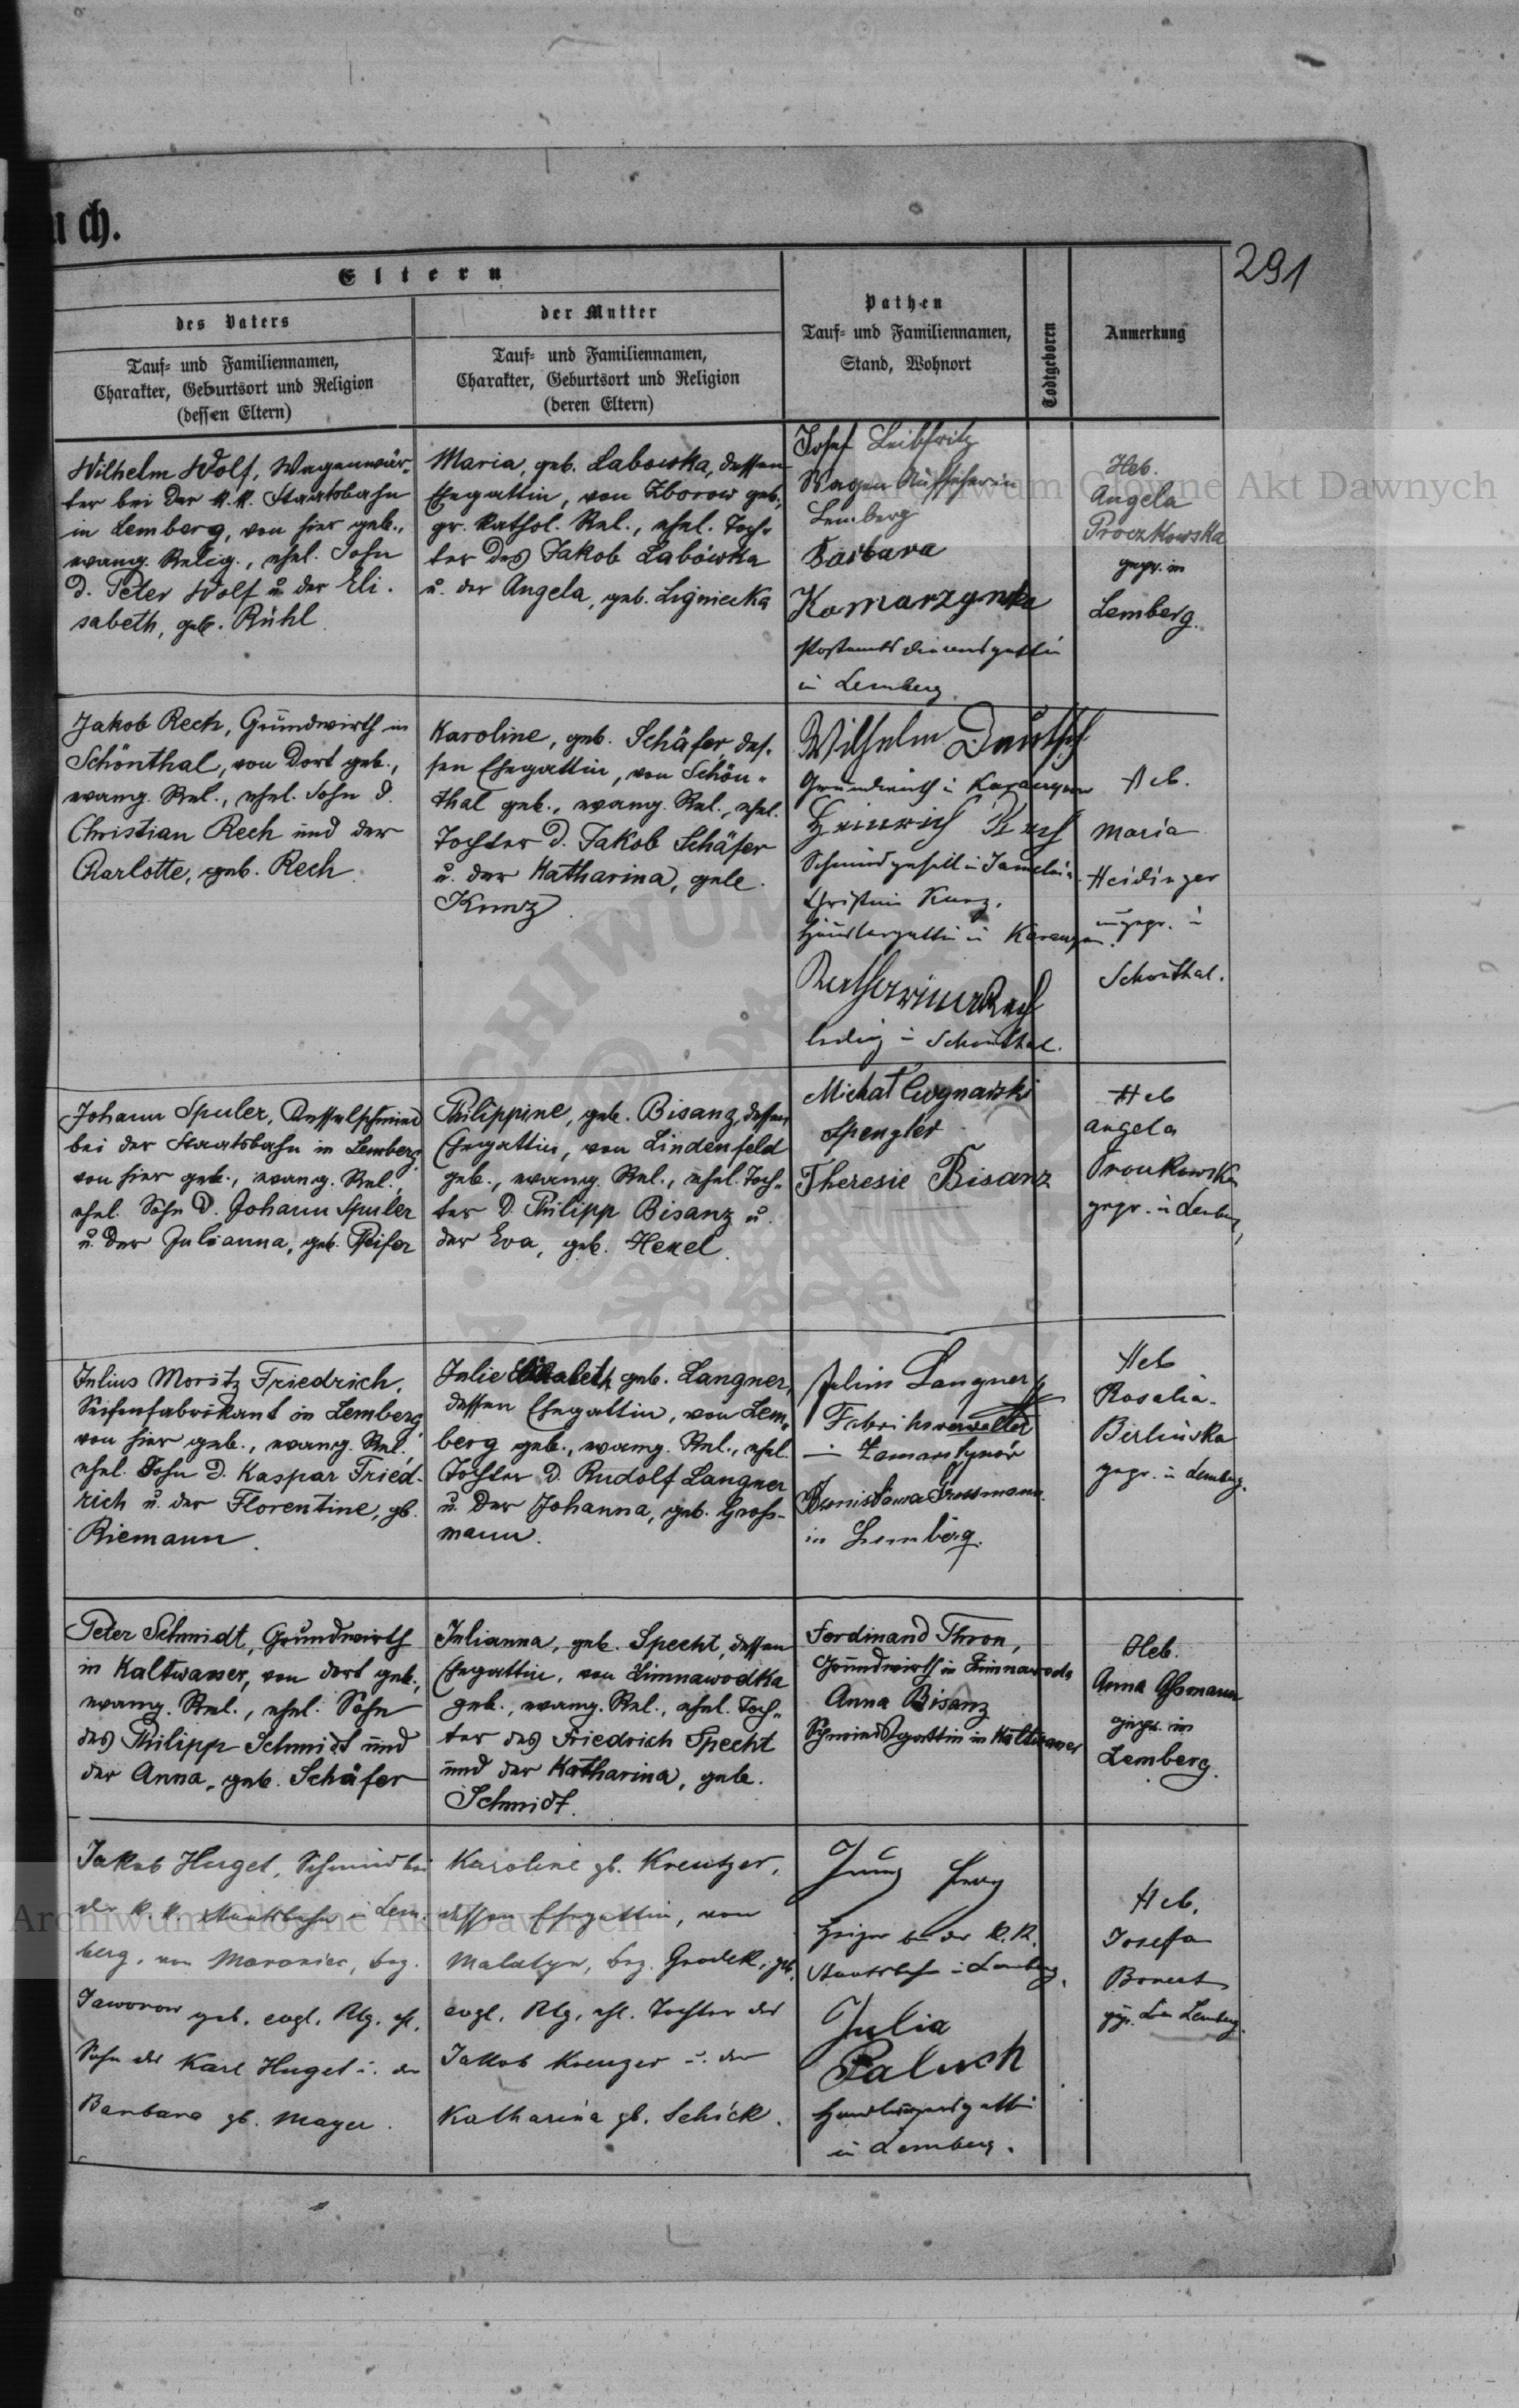 ch.
291
Eltern
des Vaters
Tauf- und Familiennamen,
Charakter, Geburtsort und Religion
(dessen Eltern)
der Mutter
Tauf- und Familiennamen,
Charakter, Geburtsort und Religion
(deren Eltern)
Pathen
Tauf- und Familiennamen,
Stand, Wohnort
Todtgeboren
Anmerkung
Wilhelm Wolf, Wagenwär-
ter bei der k.k. Staatsbahn
in Lemberg, von hier geb.,
evang. Relig., ehel. Sohn
d. Peter Wolf u. der Eli-
sabeth, geb. Rühl.
Maria, geb. Labowska, dessen
Ehegattin, von Zborow geb.,
gr. kathol. Rel., ehel. Toch-
ter des Jakob Labówka
u. der Angela, geb. Ligniecka
Josef Leibfritz
Wagen Aufseher in
Lemberg
Barbara
Komarzynska
Postamtsdienersgattin
in Lemberg.
Heb.
Angela
Proczkowska
gepr. in
Lemberg.
Jakob Rech, Grundwirth in
Schönthal, von dort geb.,
evang. Rel., ehel. Sohn d.
Christian Rech und der
Charlotte, geb. Rech.
Karoline, geb. Schäfer, des-
sen Ehegattin, von Schön-
thal geb., evang. Rel., ehel.
Tochter d. Jakob Schäfer
u. der Katharina, geb.
Kunz.
Wilhelm Deutsch
Grundwirth in
Heinrich Rech
Schmiedgeselle in
Christine Kunz,
in
Rech
ledig in Schönthal.
Heb.
Maria
Heidinger
ungepr. in
Schönthal.
Johann Spuler, Kesselschmied
bei der Staatsbahn in Lemberg,
von hier geb., evang. Rel.,
ehel. Sohn d. Johann Spuler
u. der Julianna, geb. Peifer
Philippine, geb. Bisanz, dessen
Ehegattin, von Lindenfeld
geb., evang. Rel., ehel. Toch-
ter d. Philipp Bisanz u.
der Eva, geb. Hexel.
Michał Cwynarski
Spengler
Theresie Bisanz
Heb
Angela
gepr. in Lemberg,
Julius Moritz Friedrich,
Seifenfabrikant in Lemberg
von hier geb., evang. Rel.
ehel. Sohn d. Kaspar Fried-
rich u. der Florentine, gb.
Riemann.
Julie Elisabeth geb. Langner,
dessen Ehegattin, von Lem-
berg geb., evang. Rel., ehel.
Tochter d. Rudolf Langner
u. der Johanna, geb. Gross-
mann.
Julius Langner
Fabriksverwalter
in Zamarstynów
Bronisława Grossmann
in Lemberg.
Heb
Rosalia
Birlinska
gepr. in Lemberg.
Peter Schmidt, Grundwirth
in Kaltwasser, von dort geb.,
evang. Rel., ehel. Sohn
des Philipp Schmidt und
der Anna, geb. Schäfer
Julianna, geb. Specht, dessen
Ehegattin, von Zimnawodka
geb., evang. Rel., ehel. Toch-
ter des Friedrich Specht
und der Katharina, geb.
Schmidt.
Ferdinand Thron,
Grundwirth in Zimnawoda
Anna Bisanz
Schmiedsgattin in Kaltwasser
Heb.
Anna Assmann
gepr. in
Lemberg.
Jakob Huget, Schmied bei
der k.k. Staatsbahn in Lem-
berg, von Moraniec, bez.
Jaworow geb. evgl. Rlg. ehl.
Sohn des Karl Huget u. der
Barbara gb. Mayer.
Karoline gb. Kreutzer,
dessen Ehegattin, von
Malatyn, bez. Grodek, geb.
evgl. Rlg, ehl. Tochter des
Jakob Kreuzer u. der
Katharina gb. Schick.
Heizer bei der k.k.
Staatsbahn in Lemberg,
Julia
Paluch
in Lemberg.
Heb.
Josefa
Bonert
gepr. Lemberg.
Archiwum Główne Akt Dawnych
Archiwum Główne Akt Dawnych